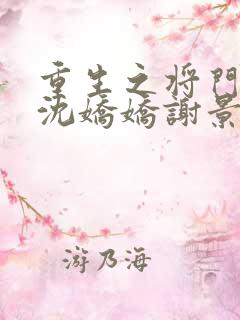 重生之将門
沈嬌嬌謝景
游乃海